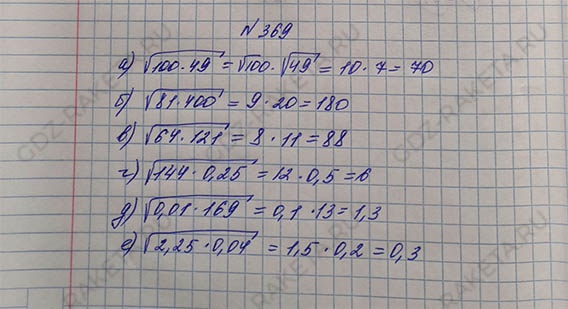 № 369
а) √100·49 = √100·√49 = 10·7 = 70
б) √81·400 = 9·20 = 180
в) √64·121 = 8·11 = 88
г) √144·0,25 = 12·0,5 = 6
д) √0,01·169 = 0,1·13 = 1,3
е) √2,25·0,04 = 1,5·0,2 = 0,3
GDZ-RAKETA.RU
GDZ-RAKETA.RU
GDZ-RAKETA.RU